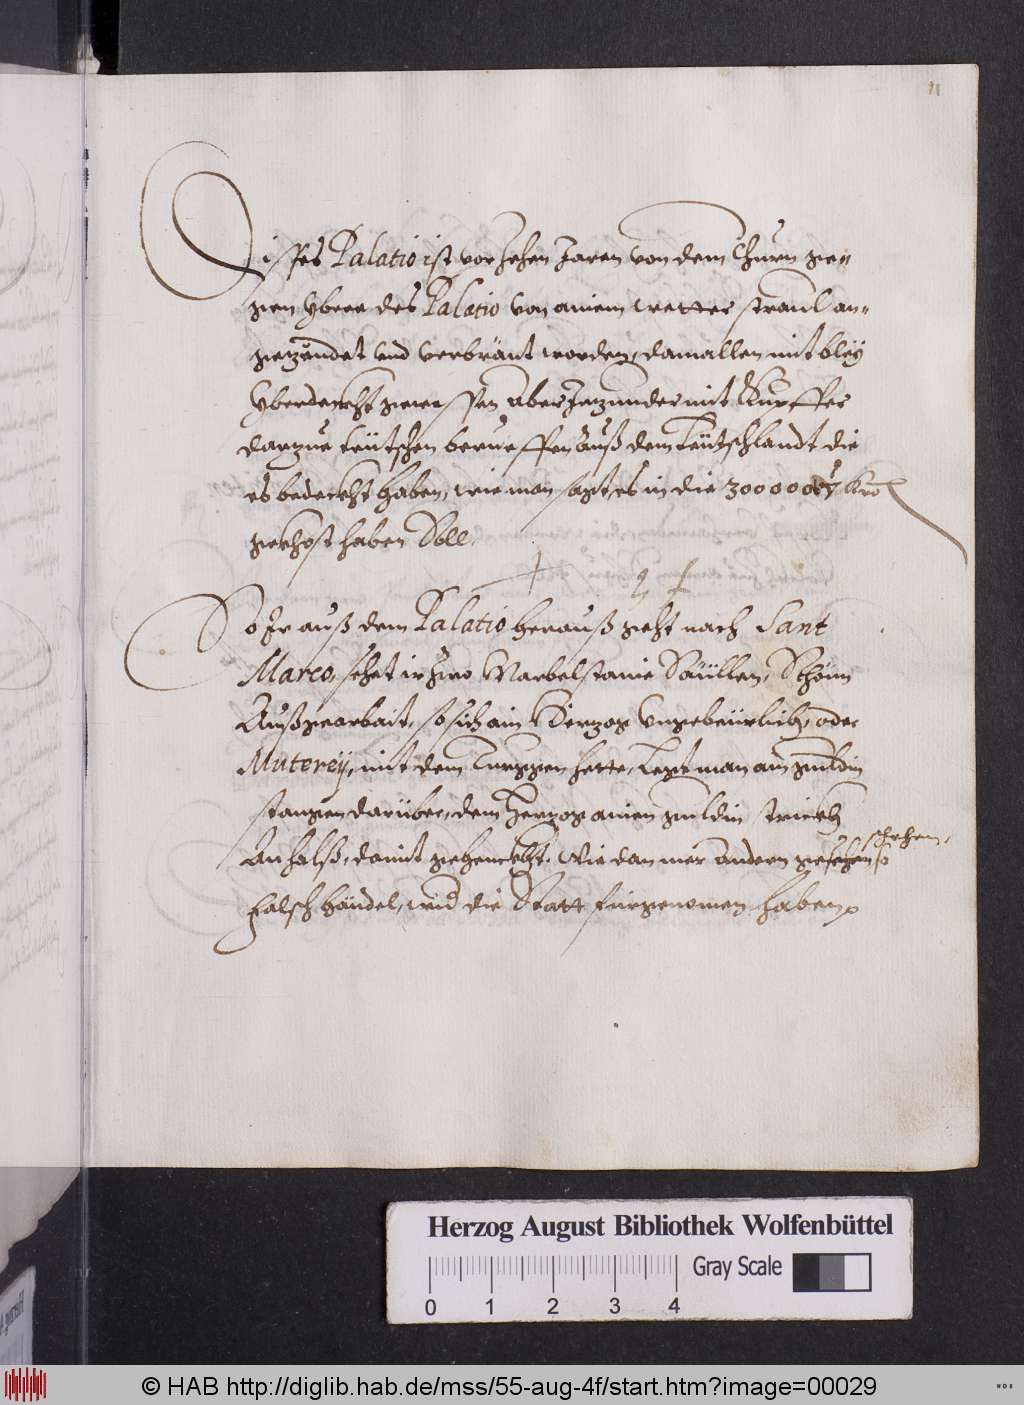 11
Disses Palatio ist vor Zehen Jaren von dem Thurn ge„
gen yberr des Palatio von ainem wetter straul an„
gezündet vnd verbränt worden, damallen mit bleÿ
yberdeckht gewessen aber Jezunder mit Kupffer
darzue teütschen berueffen Auß dem Teütschlandt die
es bedeckht haben, wie man sagt, es in die 300000 Kro
gekhost haben Soll.
So Ir auß dem Palatio herauß geht nach Sant
Marco, sehet ir zwo Marbelstanie Säüllen, Schönn
Außgearbait, so sich ain Herzog vngebeürlich, oder
Muterey, mit dem Turggen hette, Legt man ain guldin
stangen darüber, dem Herzog ainen guldin strickh
An halß, damit gehenckht. Wie dan mer andern geschehen, so
falsch händel, wid die Statt fürgenomen haben.
Herzog August Bibliothek Wolfenbüttel
Gray Scale
0 1 2 3 4
© HAB http://diglib.hab.de/mss/55-aug-4f/start.htm?image=00029